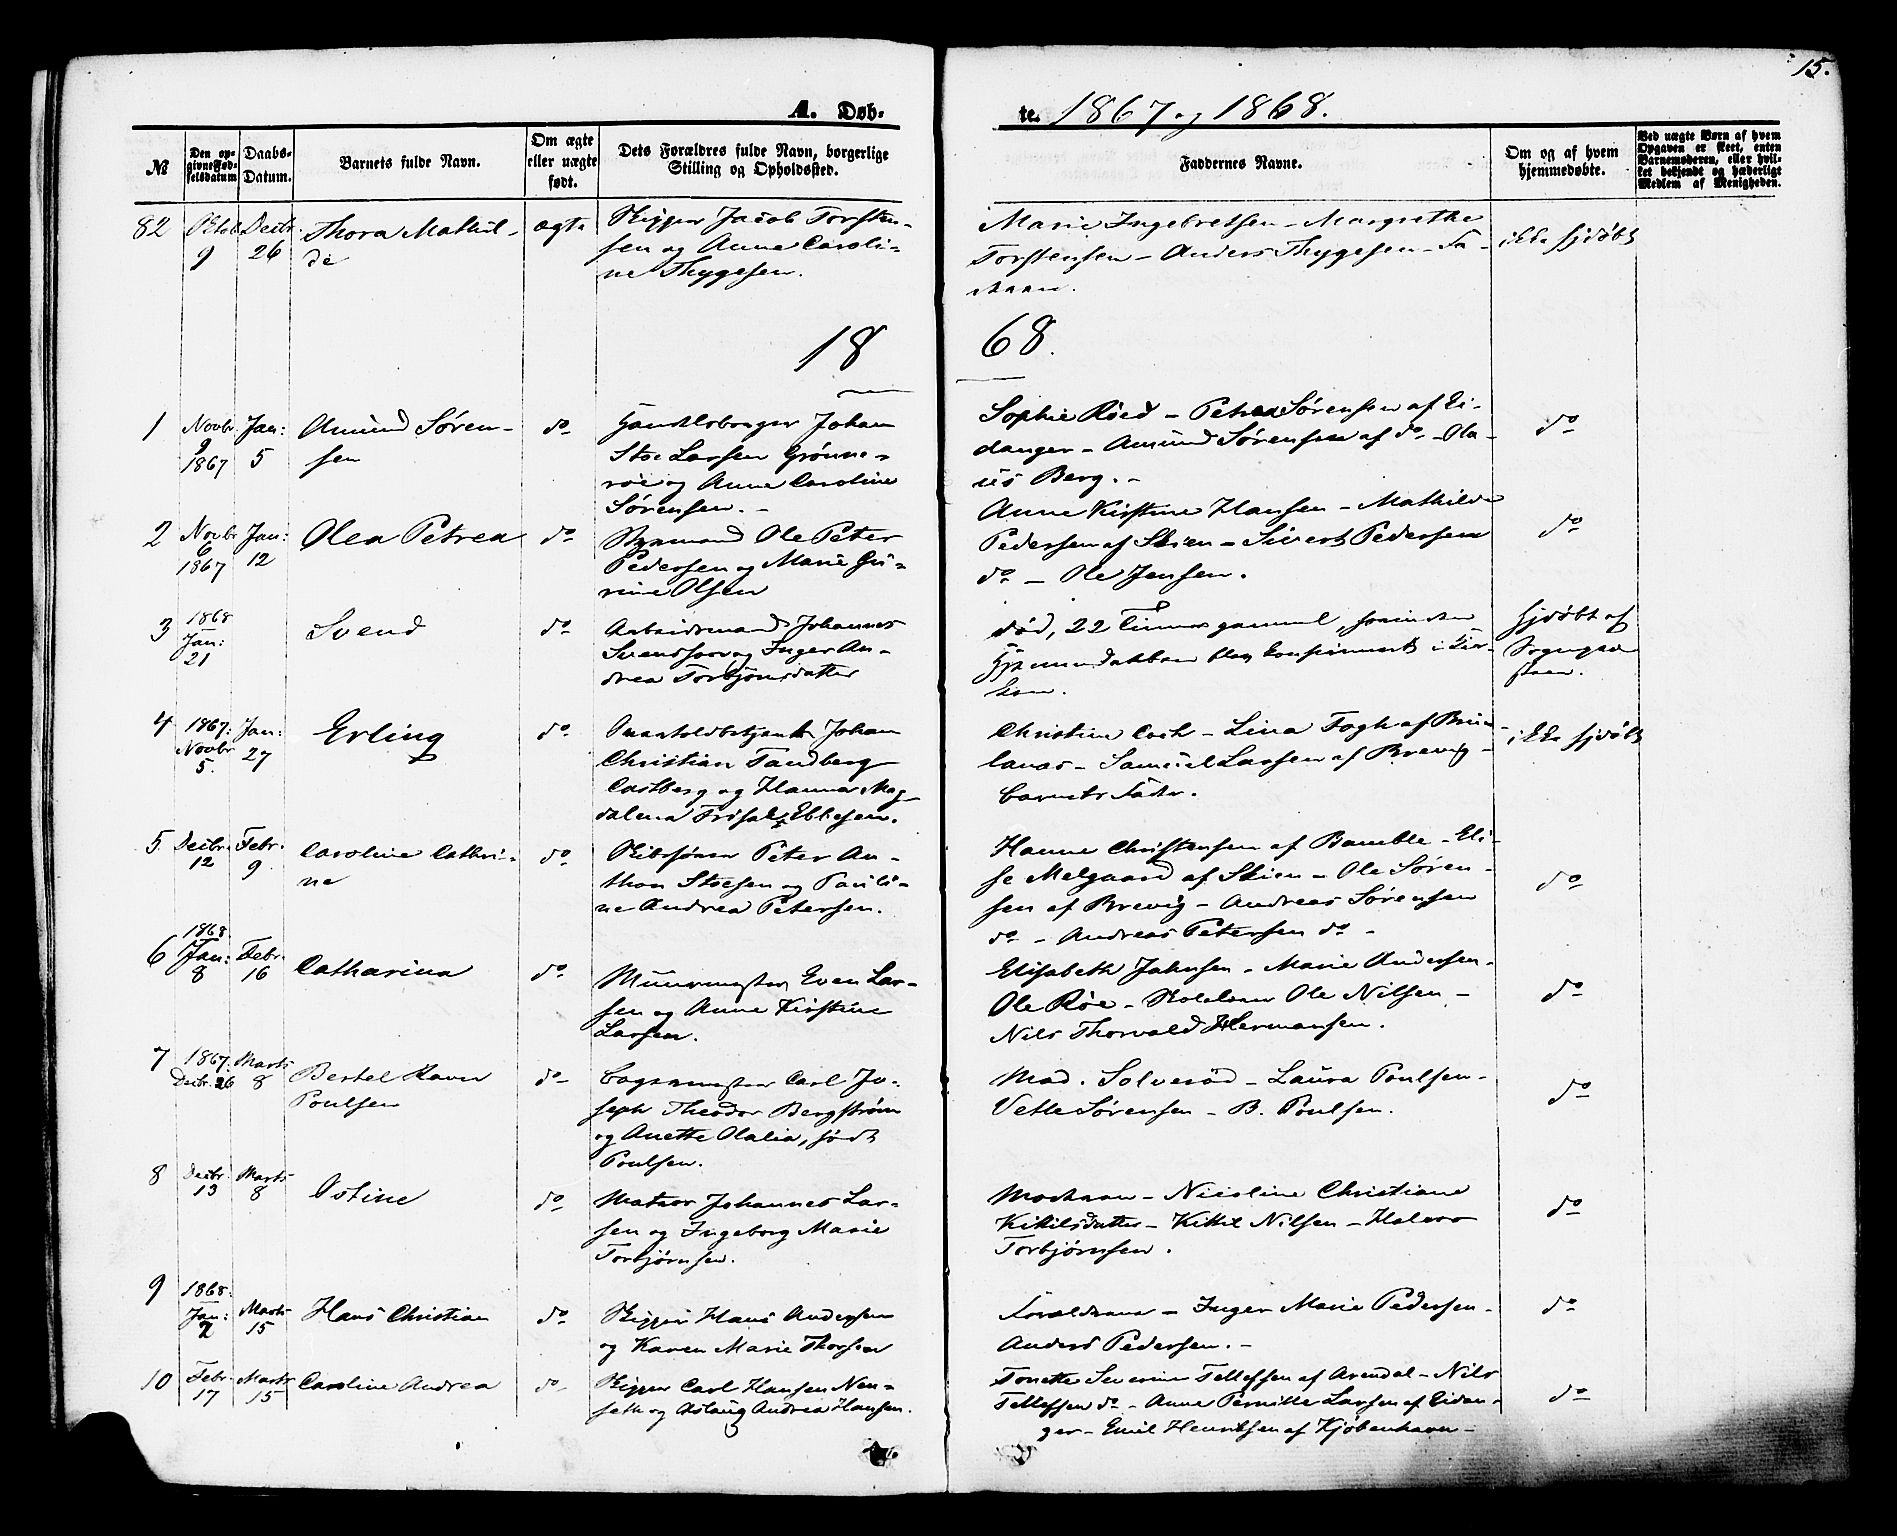 15.
A. Døb-
te. 1867 og 1868.
№
Den opgivne Fødselsdatum
Daabs-Datum.
Barnets fulde Navn.
Om ægte eller uægte født.
Dets Forældres fulde Navn, borgerlige Stilling og Opholdssted.
Faddernes Navne.
Om og af hvem hjemmedøbte.
Ved uægte Børn af hvem Opgaven er skeet, enten Barnemoderen, eller hvilket bekjendt og hæderligt Medlem af Menigheden.
82 9 Decbr. 26
Thora Mathil-
de
ægte
Skipper Jacob Torsten-
sen og Anne Caroli-
ne Thygesen.
Marie Ingebretsen - Margrethe
Torstensen - Anders Thygesen - Fa-
deren.
ikke hjdøbt
18 68.
1 Novbr 9 1867 Jan: 5
Amund Søren-
sen
do
Johan
Stoe Larsen Grønne-
røe og Anne Caroline
Sørensen. -
Sophie Röed - Petrea Sørensen af Ei-
danger - Amund Sørensen af do - Ola-
us Berg. -
do
2 Novbr 6 1867 Jan: 12
Olea Petrea
do
Ole Peter
Pedersen og Marie Gu-
rine Olsen
Anne Kirstine Hansen - Mathilde
Pedersen af Skien - Sivert Pedersen
do - Ole Jensen.
do
3 1868 Jan: 21
Svend
do
Arbeidsmand Johannes
Svendsen og Inger An-
drea Torbjörnsdatter
død, 22 Timer gammel, forinden
Hjemmedaaben blev konfirmeret i Kir-
ken.
hjdøbt af
Sognepræ
sten.
4 1867. Novbr 5. Jan: 27
Erling
do
Johan
Christian Tandberg
Castberg og Hanna Mag-
dalena Frisak Ebbesen.
Christine Cock - Lina Fogh af Brun-
lanæs - Samuel Larsen af Brevig -
barnets Fader.
ikke hjdøbt
5 Decbr. 12 Febr. 9
Caroline Cathri-
ne
do
Peter An-
thon Stoesen og Pauli-
ne Andrea Petersen.
Hanne Christensen af Bamble - Eli-
se Melgaard af Skien - Ole Søren-
sen af Brevig - Andreas Sørensen
do - Andreas Petersen do -
do
6 1868. Jan: 8 Febr. 16
Catharina
do
Muurmester Even Lar-
sen og Anne Kirstine
Larsen.
Elisabeth Jahnsen - Marie Andersen -
Ole Röe - Skolelærer Ole Nilsen -
Nils Thorvald Hermansen.
do
7 1867. Decbr. 26 Marts 8
Bertel Ravn
Poulsen
do
Bagermester Carl Jo-
seph Theodor Bergstrøm
og Anette Olalia, født
Poulsen.
Mad. Solverød - Laura Poulsen -
Vetle Sørensen - B. Poulsen.
do
8 Decbr. 13 Marts 8
Ostine
do
Matros Johannes Lar-
sen og Ingeborg Marie
Torbjørnsen.
Moderen - Nicoline Christiane
Kittilsdatter - Kittil Nilsen - Halvor
Torbjørnsen.
do
9 1868. Jan: 2 Marts 15
Hans Christian
do
Skipper Hans Andersen
og Karen Marie Thorsen
Forældrene - Inger Marie Pedersen -
Anders Pedersen. -
do
10 Febr. 17 Marts 15
Caroline Andrea
do
Skipper Carl Hansen Nen-
seth og Aslaug Andrea Hansen.
Tonette Severine Tellefsen af Arendal - Nils
Tellefsen do - Anne Pernille Larsen af Eidan-
ger - Emil Henriksen af Kjøbenhavn -
do